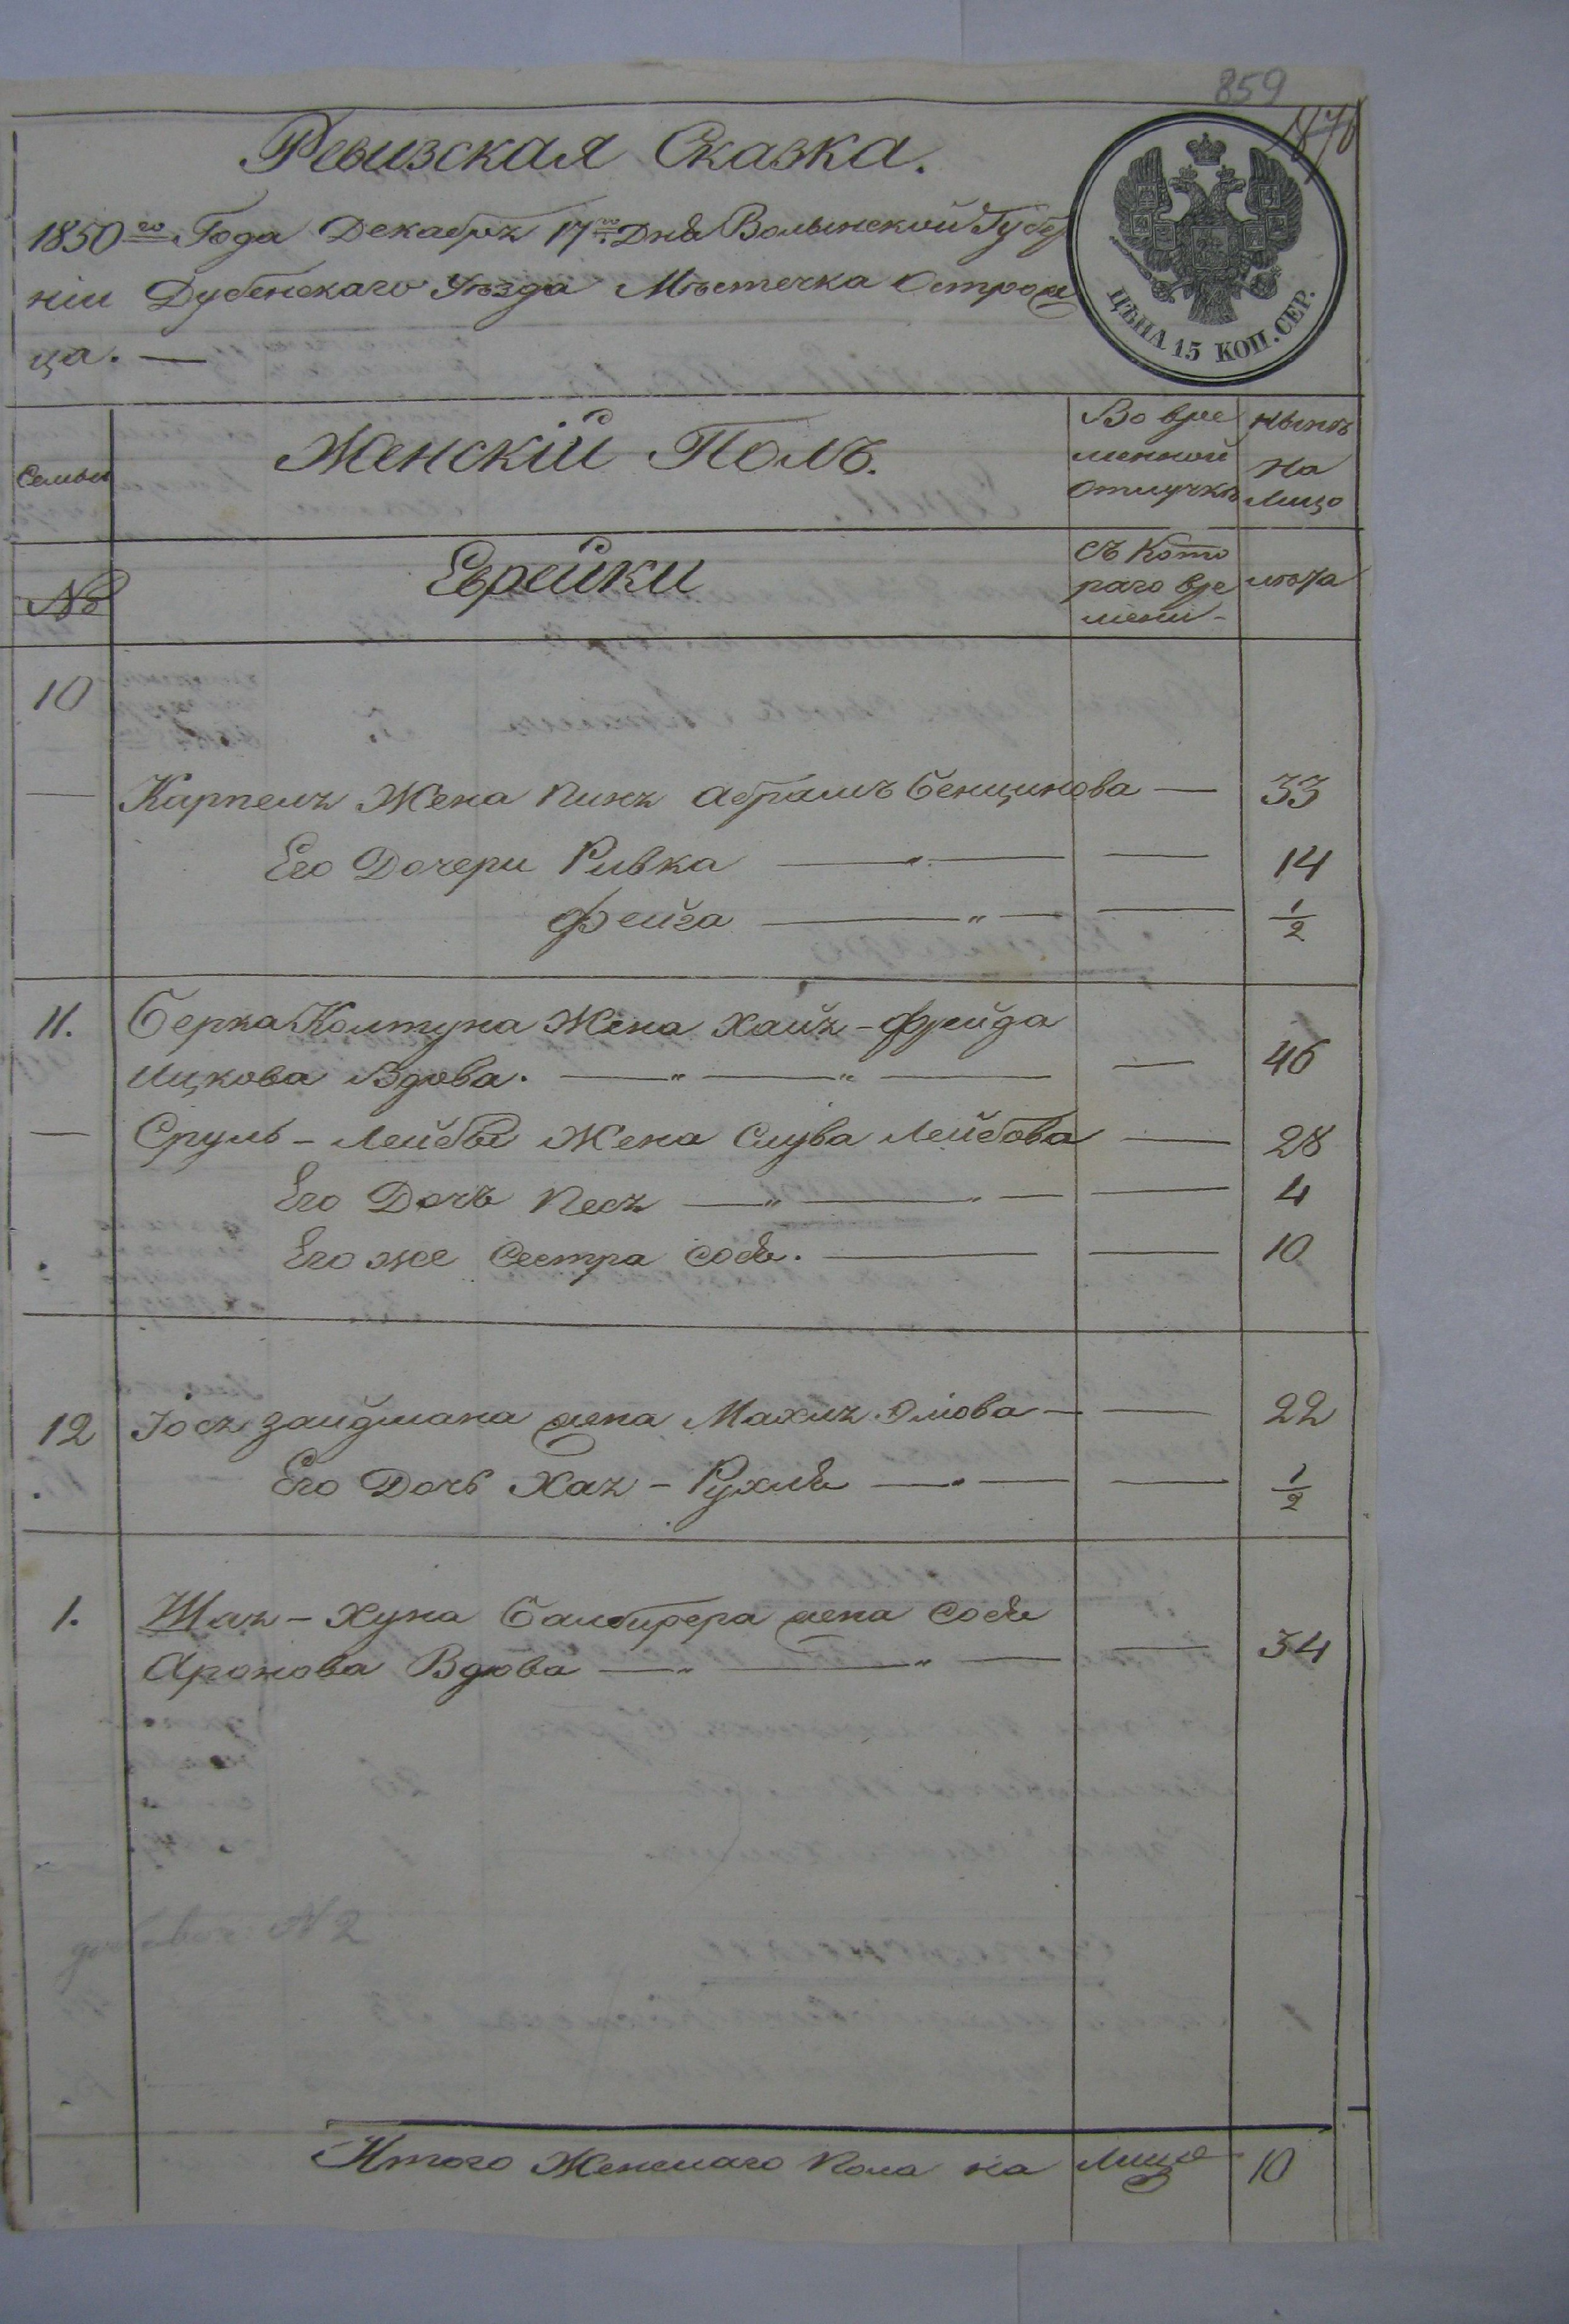 859
Ревизская Сказка.
1850го Года Декабря 17го Дня Волынской Губер
ніи Дубенскаго Уѣзда Мѣстечка Остроже
ца. —
ЦѢНА 15 КОП. СЕР.
Семьи
Женскій Полъ.
Во вре
менной
отлучкѣ
Нынѣ
на
лицо
№
Еврейки
Съ Кото
раго вре
мени -
лѣта
10
— Карпеля Жена Пиня Абрамъ Бенционова — 33
Его Дочери Ривка — " — — 14
Фейга — " — — 1/2
11. Берка Колтуна Жена Хая-Фрейда
Ицкова Вдова. — " — " — — 46
— Сруль-Лейбы Жена Слува Лейбова — 28
Его Дочь Песя — " — " — — 4
Его же Сестра Сося. — — 10
12 Іося Зайдмана жена Махля Юліова — — 22
Его Дочь Хая-Рухля — " — — 1/2
1. Шая-Хуна жена Сося
Аронова Вдова — " — " — — 34
№ 2
Итого Женскаго пола на лицо 10